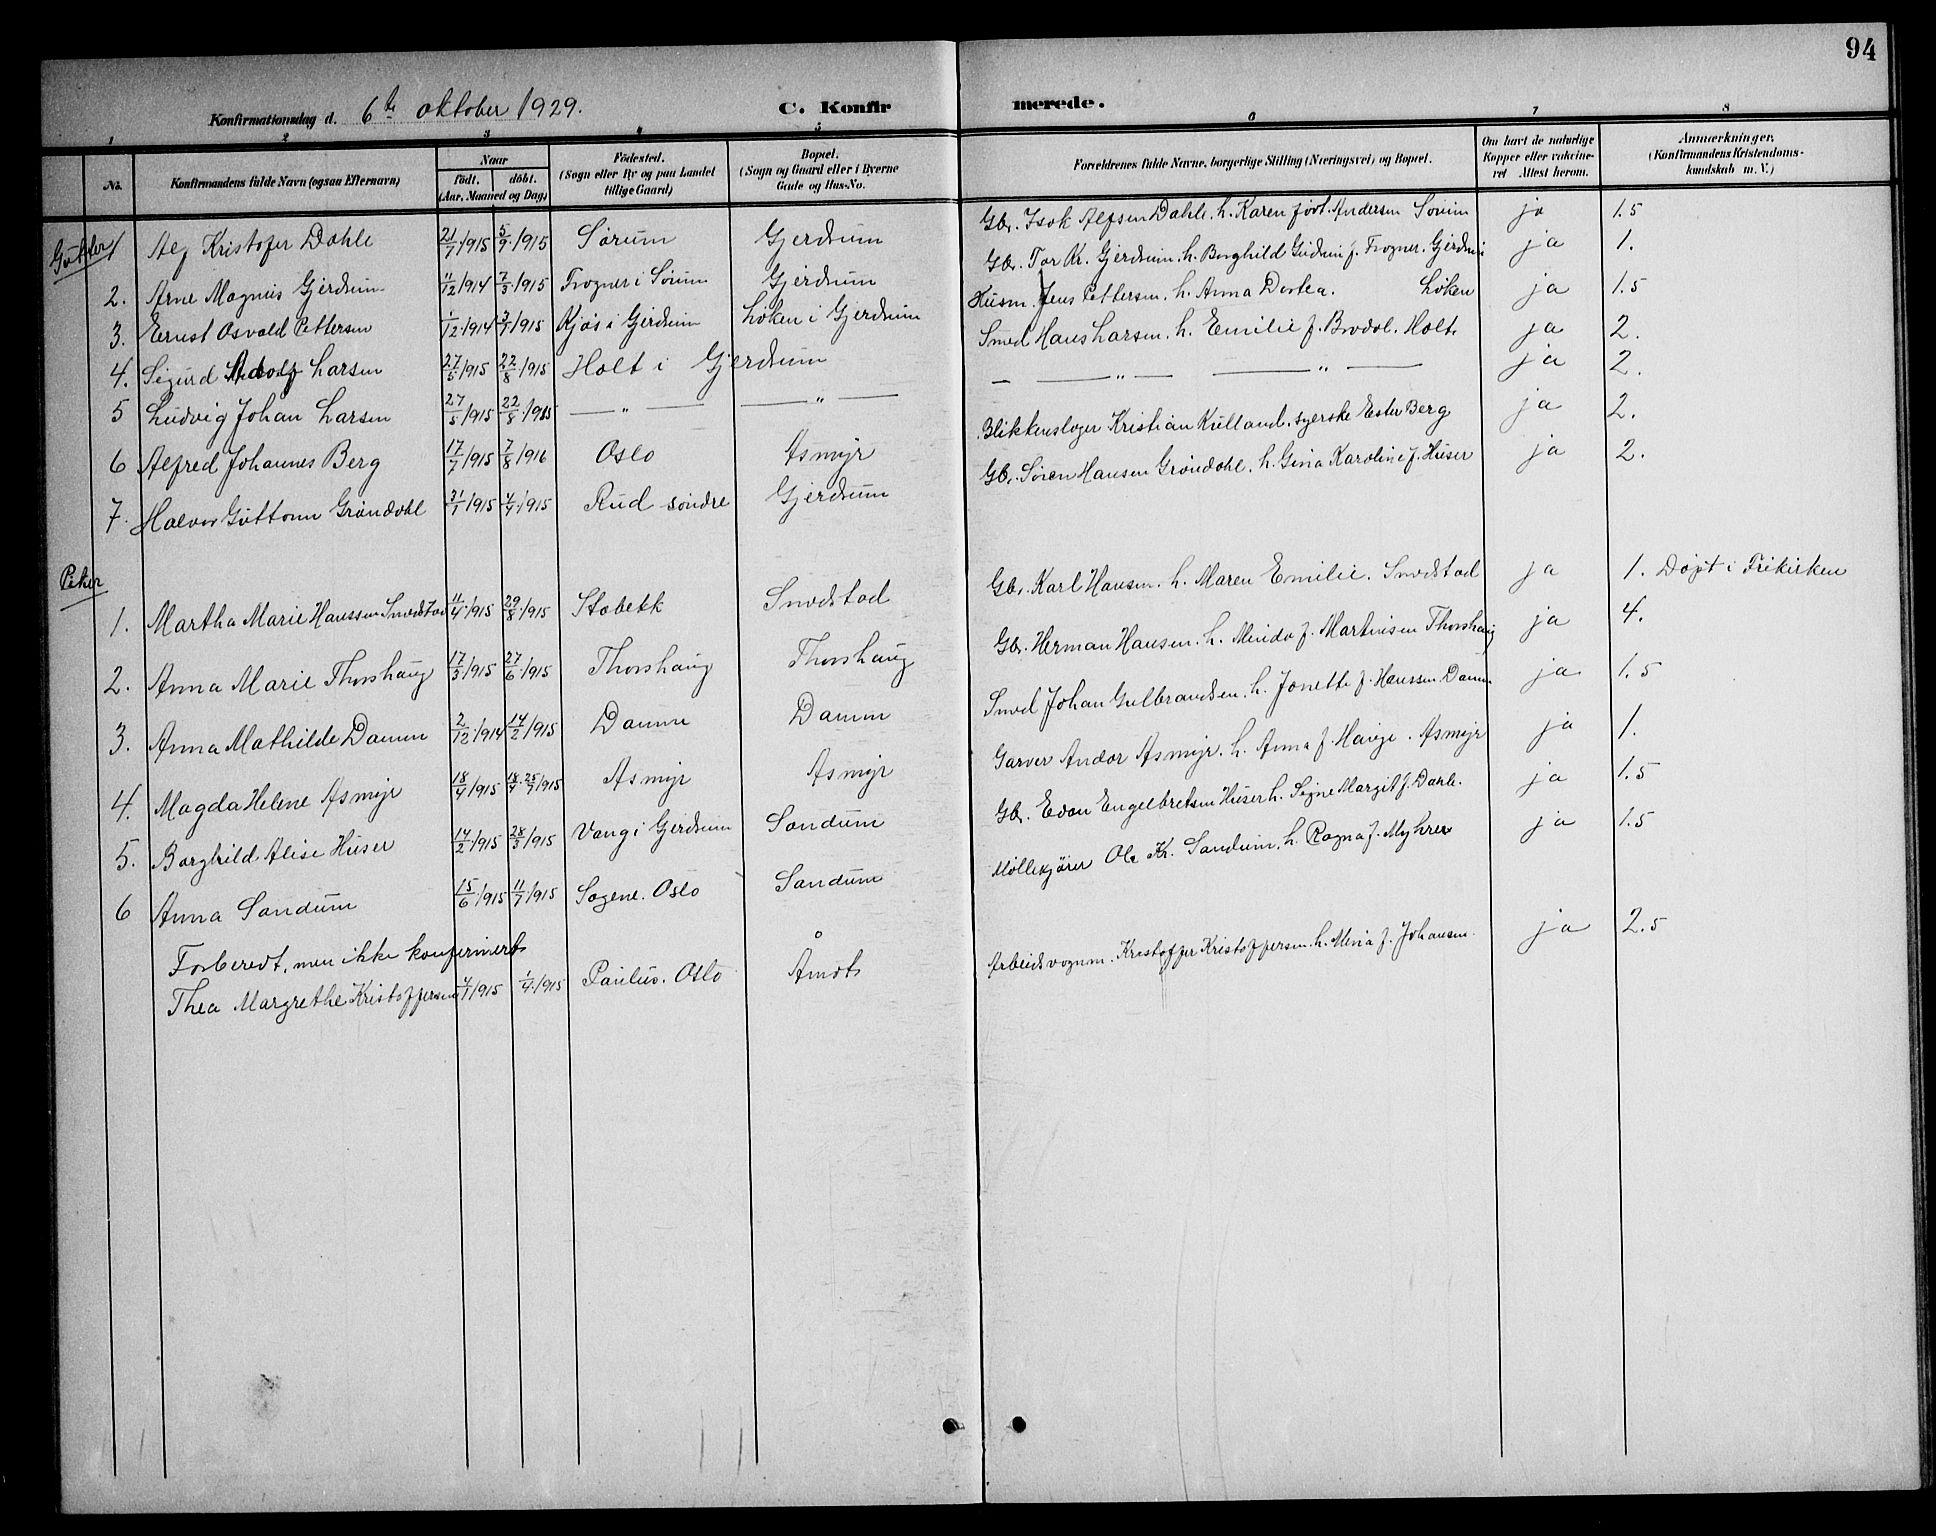 94
Konfirmationsdag d. 6te oktober 1929. C. Konfir merede.
1 2 3 4 5 6 7 8
No. Konfirmandens fulde Navn (ogsaa Efternavn) Naar födt. döbt. (Aar, Maaned og Dag) Födested. (Sogn eller By og paa Landet tillige Gaard) Bopæl. (Sogn og Gaard eller i Byerne Gade og Hus-No. Forældrenes fulde Navne, borgerlige Stilling (Næringsvei) og Bopæl. Om havt de naturlige Kopper eller vakcineret Attest herom. Anmærkninger. (Konfirmandens Kristendomskundskab m. V.)
Gutter 1 Alf Kristofer Dahle 21/7 1915 5/9 1915 Sørum Gjerdrum Gbr. Isak Alfsen Dahle. h. Karen født Andersen Sørum ja 1.5
2. Arne Magnus Gjerdrum 11/12 1914 7/3 1915 Frogner i Sørum Gjerdrum Gbr. Tor Kr. Gjerdrum. h. Borghild Gudrun f. Frogner. Gjerdrum ja 1.
3. Ernst Osvald Pettersen 1/12 1914 1915 Kjøs i Gjerdrum Løken i Gjerdrum Husm. Jens Pettersen. h. Anna Dortea. Løken ja 1.5
4. Sigurd Adolf Larsen 27/5 1915 22/8 1915 Holt i Gjerdrum Smed Hans Larsen. h. Emilie f. Brodal. Holt. ja 2.
5 Ludvig Johan Larsen 27/5 1915 22/8 1915 — " — — " — — — " — — " — ja 2.
6 Alfred Johannes Berg 17/7 1915 7/8 1916 Oslo Asmyr Blikkenslager Kristian Kulland. syerske Ester Berg ja 2.
7. Halvor Guttorm Grøndahl 31/1 1915 4/4 1915 Rud søndre Gjerdrum Gbr. Søren Hansen Grøndahl. h. Gina Karoline f. Huser ja 2.
Piker
1. Martha Marie Hanssen Smedstad 11/4 1915 29/8 1915 Stabekk Smedstad Gbr. Karl Hansen. h. Maren Emilie. Smedstad ja 1. Døpt i Frikirken
2. Anna Marie Thorshaug 17/3 1915 27/6 1915 Thorshaug Thorshaug Gbr. Herman Hansen. h. Minda f. Martinsen Thorshaug ja 4.
3. Anna Mathilde Damm 2/12 1914 14/2 1915 Damm Damm Smed Johan Gulbrandsen. h. Jonette f. Hanssen. Damm ja 1.5
4. Magda Helene Asmyr 18/4 1915 18/4 25/7 1915 Asmyr Asmyr Garver Andor Asmyr. h. Anna f. Hauge. Asmyr ja 1.
5. Borghild Alise Huser 14/2 1915 28/3 1915 Vang i Gjerdrum Sandum Gbr. Edon Engelbretsen Huser h. Signe Margit f. Dahle. ja 1.5
6 Anna Sandum 15/6 1915 11/7 1915 Sagene. Oslo Sandum Møllekjører Ole Kr. Sandum. h. Ragna f. Myhrer ja 1.5
Forberedt, men ikke konfirmert
Thea Margrethe Kristoffersen 1915 1/4 1915 Paulus. Oslo Åmot Arbeidsvognm. Kristoffer Kristoffersen. h. Mina f. Johansen. ja 2.5